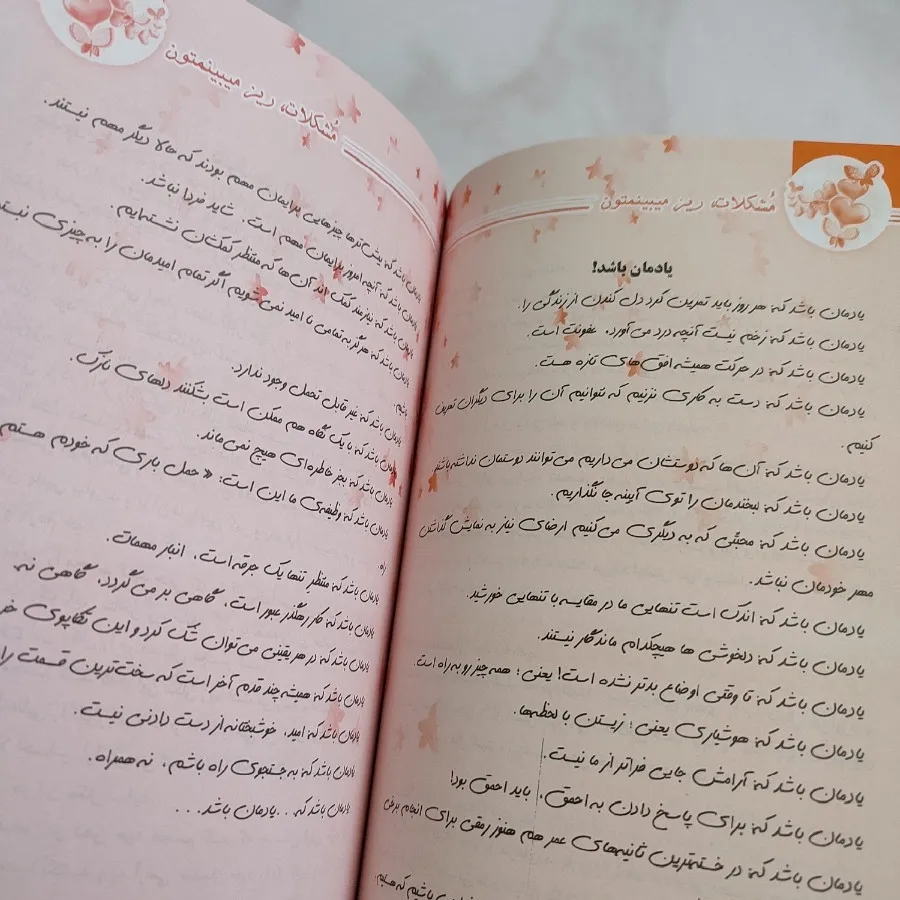 مُشکلات، ریز میبینمتون
یادمان باشد!
یادمان باشد که: هر روز باید تمرین کرد دل کندن از زندگی را.
یادمان باشد که: زخم نیست آنچه درد می‌آورد، عفونت است.
یادمان باشد که: در حرکت همیشه افق‌های تازه هست.
یادمان باشد که: دست به کاری نزنیم که نتوانیم آن را برای دیگران تعریف
کنیم.
یادمان باشد که: آن‌ها که دوستشان می‌داریم می‌توانند دوستمان نداشته‌باشند
یادمان باشد که: لبخندمان را توی آیینه جا نگذاریم.
یادمان باشد که: محبّتی که به دیگری می‌کنیم ارضای نیاز به نمایش گذاشتن
مهر خودمان نباشد.
یادمان باشد که: اندک است تنهایی ما در مقایسه با تنهایی خورشید.
یادمان باشد که: دلخوشی ها هیچکدام ماندگار نیستند.
یادمان باشد که: تا وقتی اوضاع بدتر نشده است! یعنی؛ همه چیز رو به راه است.
یادمان باشد که: هوشیاری یعنی؛ زیستن با لحظه‌ها.
یادمان باشد که: آرامش جایی فراتر از ما نیست.
یادمان باشد که: برای پاسخ دادن به احمق، باید احمق بود!
یادمان باشد که: در خسته‌ترین ثانیه‌های عمر هم هنوز رمقی برای انجام برخی
باشیم که هستیم.
مُشکلات، ریز میبینمتون
یادمان باشد که: پیش‌ترها چیزهایی برایمان مهم بودند که حالا دیگر مهم نیستند.
یادمان باشد که: آنچه امروز برایمان مهم است، شاید فردا نباشد.
یادمان باشد که: نیازمند کمک اند آن‌ها که منتظر کمکشان نشسته‌ایم.
یادمان باشد که: هرگز به تمامی نا امید نمی‌شویم اگر تمام امیدمان را به چیزی
باشیم.
یادمان باشد که: غیر قابل تحمل وجود ندارد.
یادمان باشد که: با یک نگاه هم ممکن است بشکنند دلهای نازک.
یادمان باشد که: بجز خاطره‌ای هیچ نمی‌ماند.
یادمان باشد که: وظیفه‌ی ما این است: «حمل باری که خودم هستم
راه.
یادمان باشد که: منتظرِ تنها یک جرقه است، انبار مهمات.
یادمان باشد که: کار رهگذر عبور است، گاهی بر می‌گردد، گاهی نه.
یادمان باشد که: در هر یقینی می‌توان شک کرد و این تکاپوی
یادمان باشد که: همیشه چند قدم آخر است که سخت‌ترین قسمت راه
یادمان باشد که: امید، خوشبختانه از دست دادنی نیست.
یادمان باشد که: به جستجوی راه باشم، نه همراه.
یادمان باشد که...یادمان باشد...